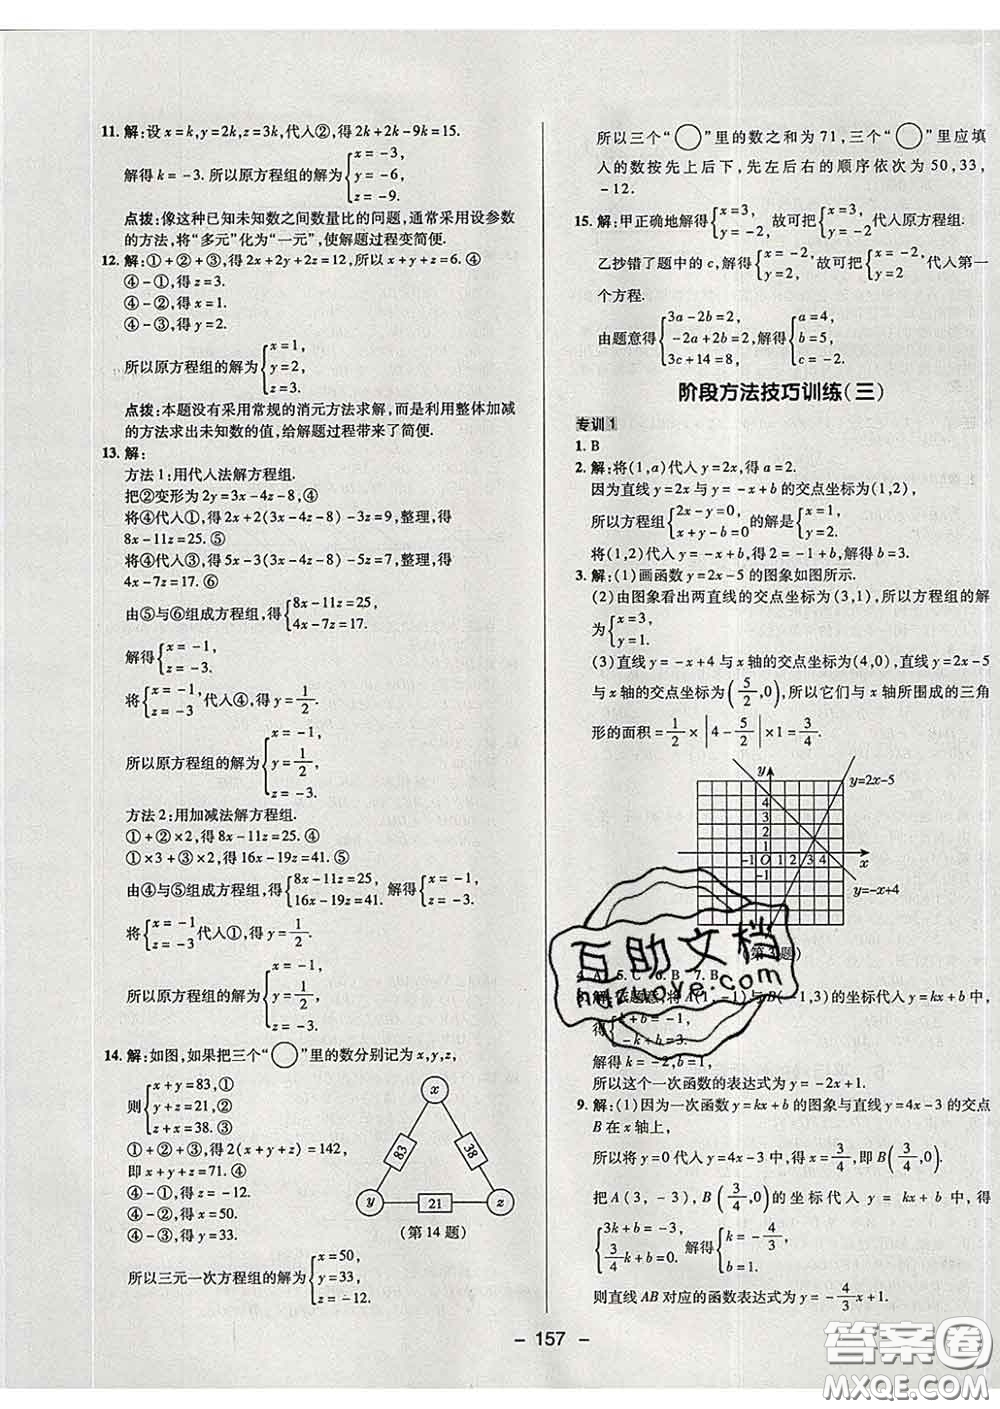 11. 解:设 x=k,y=2k,z=3k,代入②,得 2k+2k-9k=15.
解得 k=-3. 所以原方程组的解为{x=-3,
y=-6,
z=-9.
点拨:像这种已知未知数之间数量比的问题,通常采用设参数
的方法,将“多元”化为“一元”,使解题过程变简便.
12. 解:①+②+③,得 2x+2y+2z=12,所以 x+y+z=6. ④
④-①,得 z=3.
④-②,得 x=1.
④-③,得 y=2.
所以原方程组的解为{x=1,
y=2,
z=3.
点拨:本题没有采用常规的消元方法求解,而是利用整体加减
的方法求出未知数的值,给解题过程带来了简便.
13. 解:
方法 1:用代入法解方程组.
把②变形为 2y=3x-4z-8,④
将④代入①,得 2x+2(3x-4z-8)-3z=9,整理,得
8x-11z=25. ⑤
将④代入③,得 5x-3(3x-4z-8)-5z=7,整理,得
4x-7z=17. ⑥
由⑤与⑥组成方程组,得{8x-11z=25,
4x-7z=17.
解得{x=-1,
z=-3.
将{x=-1,
z=-3代入④,得 y=1/2.
所以原方程组的解为{x=-1,
y=1/2,
z=-3.
方法 2:用加减法解方程组.
①+②×2,得 8x-11z=25. ④
①×3+③×2,得 16x-19z=41. ⑤
由④与⑤组成方程组,得{8x-11z=25,
16x-19z=41. 解得{x=-1,
z=-3.
将{x=-1
z=-3代入①,得 y=1/2.
所以原方程组的解为{x=-1,
y=1/2,
z=-3.
14. 解:如图,如果把三个“○”里的数分别记为 x,y,z,
则{x+y=83,①
y+z=21,②
z+x=38. ③
①+②+③,得 2(x+y+z)=142,
即 x+y+z=71. ④
④-①,得 z=-12.
④-②,得 x=50.
④-③,得 y=33.
x
83
38
y
21
z
(第 14 题)
所以三元一次方程组的解为{x=50,
y=33,
z=-12.
所以三个“○”里的数之和为 71,三个“○”里应填
人的数按先上后下,先左后右的顺序依次为 50,33,
-12.
15. 解:甲正确地解得{x=3,
y=-2,故可把{x=3,
y=-2代入原方程组.
乙抄错了题中的 c,解得{x=-2,
y=2,故可把{x=-2,
y=2代入第一
个方程.
由题意得{3a-2b=2,
-2a+2b=2,
3c+14=8,解得{a=4,
b=5,
c=-2.
阶段方法技巧训练(三)
专训1
1. B
2. 解:将(1,a)代入 y=2x,得 a=2.
因为直线 y=2x 与 y=-x+b 的交点坐标为(1,2),
所以方程组{2x-y=0,
x+y-b=0的解是{x=1,
y=2.
将(1,2)代入 y=-x+b,得 2=-1+b,解得 b=3.
3. 解:(1)画函数 y=2x-5 的图象如图所示.
(2)由图象看出两直线的交点坐标为(3,1),所以方程组的解
为{x=3,
y=1.
(3)直线 y=-x+4 与 x 轴的交点坐标为(4,0),直线 y=2x-5
与 x 轴的交点坐标为(5/2,0),所以它们与 x 轴所围成的三角
形的面积=1/2×|4-5/2|×1=3/4.
y
y=2x-5
4
3
2
1
-1 O 1 2 3 4 x
-1
y=-x+4
(第 3 题)
4. A 5. C 6. B 7. B
8. 解:依题意,将 A(1,-1)与 B(-1,3)的坐标代入 y=kx+b 中,
得{k+b=-1,
-k+b=3.
解得 k=-2,b=1,
所以这个一次函数的表达式为 y=-2x+1.
9. 解:(1)因为一次函数 y=kx+b 的图象与直线 y=4x-3 的交点
B 在 x 轴上,
所以将 y=0 代入 y=4x-3 中,得 x=3/4,即 B(3/4,0).
把 A(3,-3),B(3/4,0)的坐标代入 y=kx+b 中,得
{3k+b=-3,
3/4k+b=0. 解得{k=-4/3,
b=1.
则直线 AB 对应的函数表达式为 y=-4/3x+1.
互助文档
huzhove.com
- 157 -
答案圈
MXQE.COM